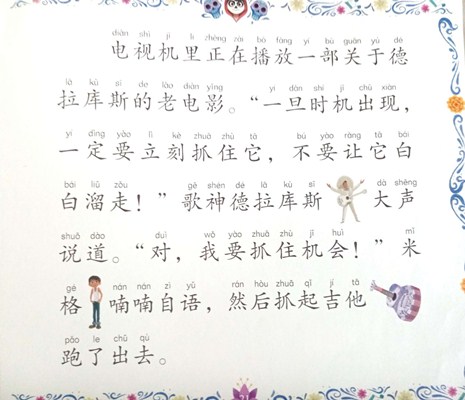 diàn shì jī lǐ zhèng zài bō fàng yí bù guān yú dé
电视机里正在播放一部关于德
lā kù sī de lǎo diàn yǐng yí dàn shí jī chū xiàn
拉库斯的老电影。“一旦时机出现，
yí dìng yào lì kè zhuā zhù tā bú yào ràng tā bái
一定要立刻抓住它，不要让它白
bái liū zǒu gē shén dé lā kù sī dà shēng
白溜走！”歌神德拉库斯大声
shuō dào duì wǒ yào zhuā zhù jī huì mǐ
说道。“对，我要抓住机会！”米
gé nán nán zì yǔ rán hòu zhuā qǐ jí tā
格喃喃自语，然后抓起吉他
pǎo le chū qù
跑了出去。